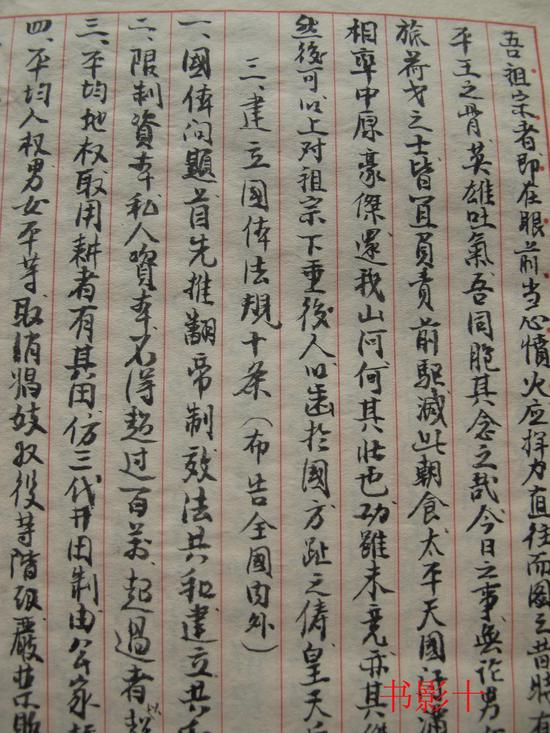 吾祖宗者即在眼前当心愤火应拌力直往而图之昔時有
平王之骨英雄吐氣吾同胞其念之哉今日之事無论男女
旅荷戈之士皆宜負责前驱滅此朝食太平天國洪滿
相率中原豪傑還我山河何其壮也功雖未竟亦其傑
然後可以上对祖宗下垂後人以齿於國方趾之俦皇天后
三、建立國体法規十条（布告全國内外）
一、國体问题首先推翻帝制效法共和建立共和
二、限制資本私人資本不得超过百萬起過者超
三、平均地权取用耕者有其田仿三代井田制由公家
四、平均人权男女平等取消娼妓奴役等階级嚴禁
书影十